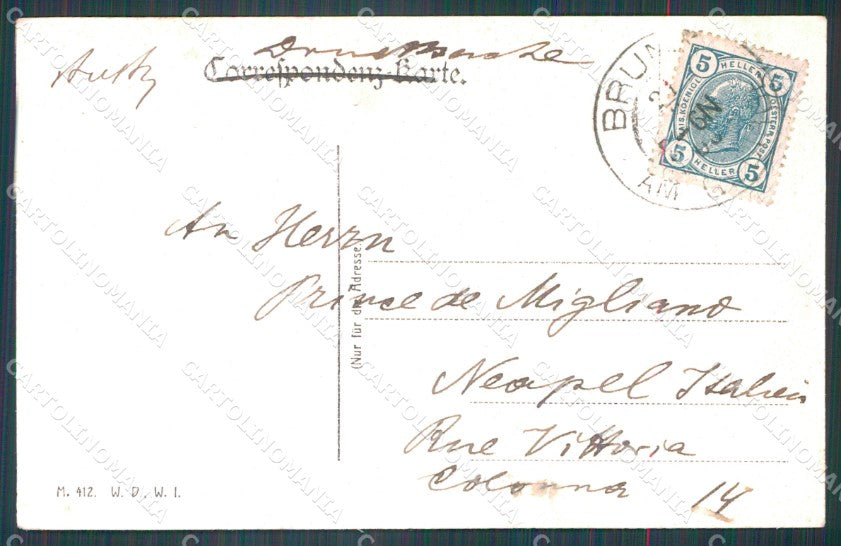 Drucksache
Correspondenz-Karte.
BRUN
AM
5 HELLER 5
5 HELLER 5
An Herrn
Prince de Migliano
Neapel Italien
Rue Vittoria
Colonna 14
(Nur für die Adresse.)
M. 412. W. D. W. I.
CARTOLINOMANIA